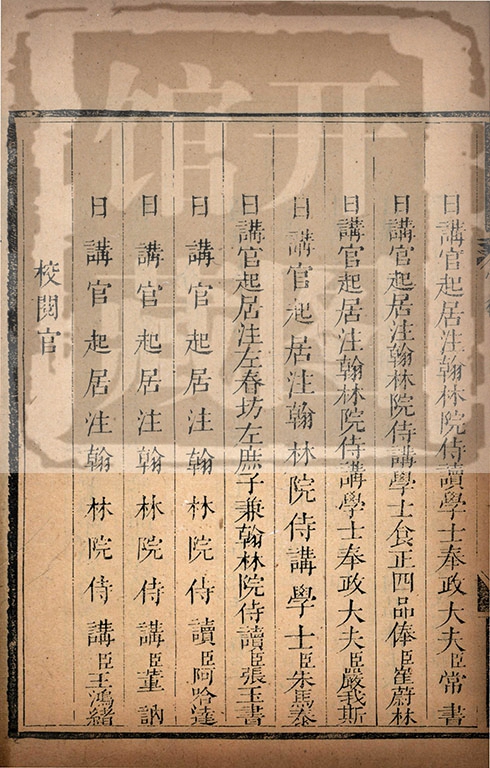 日講官起居注翰林院侍讀學士奉政大夫臣常書
日講官起居注翰林院侍講學士食正四品俸臣崔蔚林
日講官起居注翰林院侍講學士奉政大夫臣嚴我斯
日講官起居注翰林院侍講學士臣朱馬泰
日講官起居注左春坊左庶子兼翰林院侍讀臣張玉書
日講官起居注翰林院侍讀臣阿哈達
日講官起居注翰林院侍講臣董訥
日講官起居注翰林院侍講臣王鴻緒
校閱官
开
馆